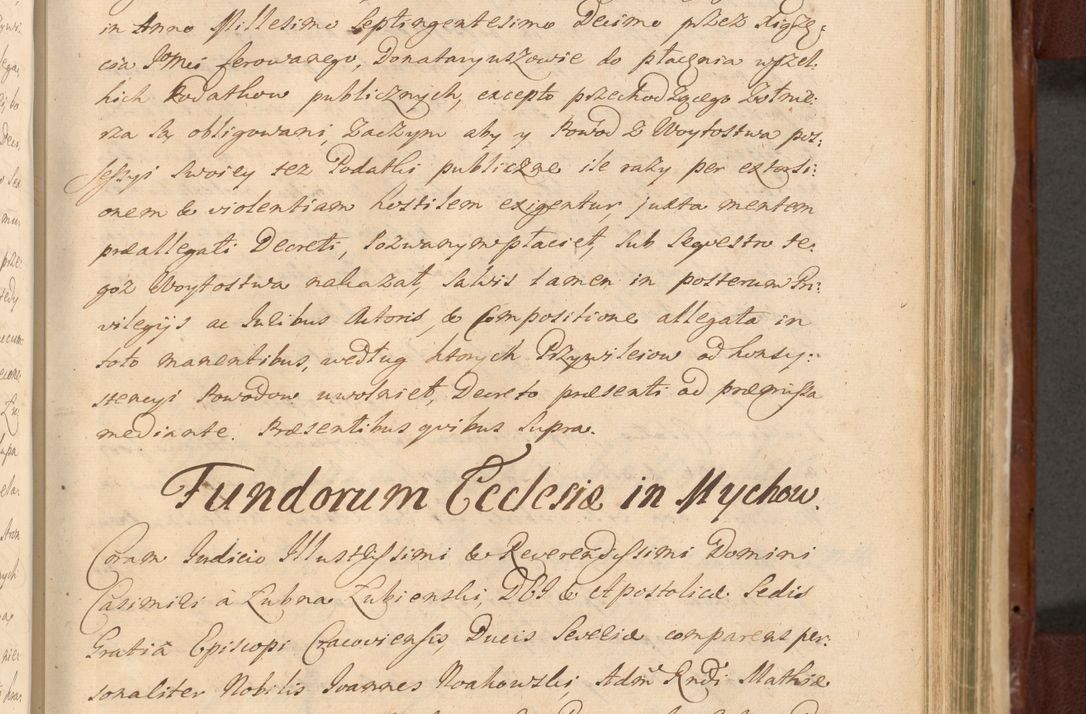 in Anno Millesimo Septingentesimo Decimo przez Xiążę,
cia Jmci ferowanego, Donataryuszowie do płacenia wszel.
kich Podatkow publicznych, excepto przechodzącego Zołnie:
rza są obligowani, Zaczym aby y Powod z Woytostwa pos:
sessyi swoiey tez Podatki publiczne ile razy per extorsi:
onem & violentiam hostilem exigentur, juxta mentem
præallegati Decreti, Pozwanym płacieł, sub sequestro te,
goz Woytostwa nakazał, salvis tamen in posterum Pri:
vilegijs ac Iuribus Actoris, & Compositione allegata in
toto manentibus, według ktorych Przywileiow od konsy:
stencyi Powodow uwolnieł, Decreto præsenti ad præmissa
mediante. Præsentibus quibus supra.
Fundorum Ecclesiæ in Mychow.
Coram Iudicio Illustrissimi & Reverendissimi Domini
Casimiri à Łubna Łubienski, DEI & Apostolicæ Sedis
Gratiâ Episcopi Cracoviensis, Ducis Severiæ comparens per,
sonaliter Nobilis Ioannes Noakowski, Admo Rndi Mathiæ